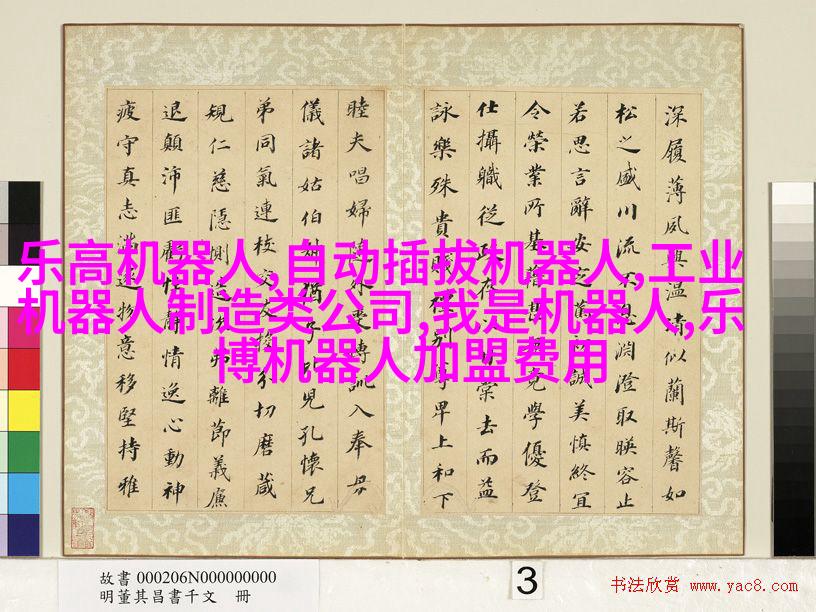 深履薄夙興溫凊似蘭斯馨如
松之盛川流不息淵澄取暎容止
若思言辭安定篤初誠美慎終宜
令榮業所基籍甚無竟學優登
仕攝職從政存以甘棠去而益
詠樂殊貴賤禮別尊卑上和下
睦夫唱婦隨外受傅訓入奉母
儀諸姑伯叔猶子比兒孔懷兄
弟同氣連枝交友投分切磨箴
規仁慈隱惻造次弗離節義廉
退顛沛匪虧性靜情逸心動神
疲守真志滿逐物意移堅持雅
乐高机器人,自动插拔机器人,工业
机器人制造类公司,我是机器人,乐
博机器人加盟费用
故書 000206N000000000
明董其昌書千文 冊
3
书法欣赏 www.yac8.com